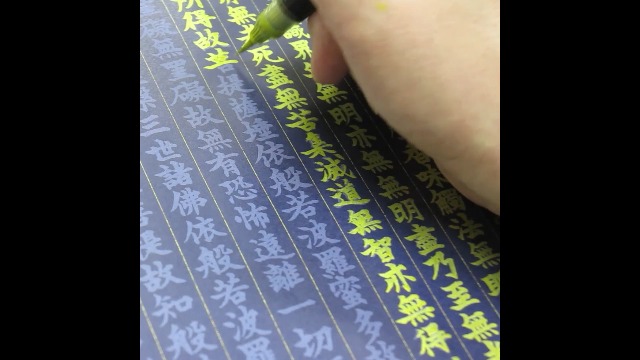 香味觸法無眼
識界無明亦無無明盡乃至無老
無老死盡無苦集滅道無智亦無得
所得故菩提薩埵依般若波羅蜜多
礙無罣礙故無有恐怖遠離一切
三世諸佛依般若波羅
提故知般